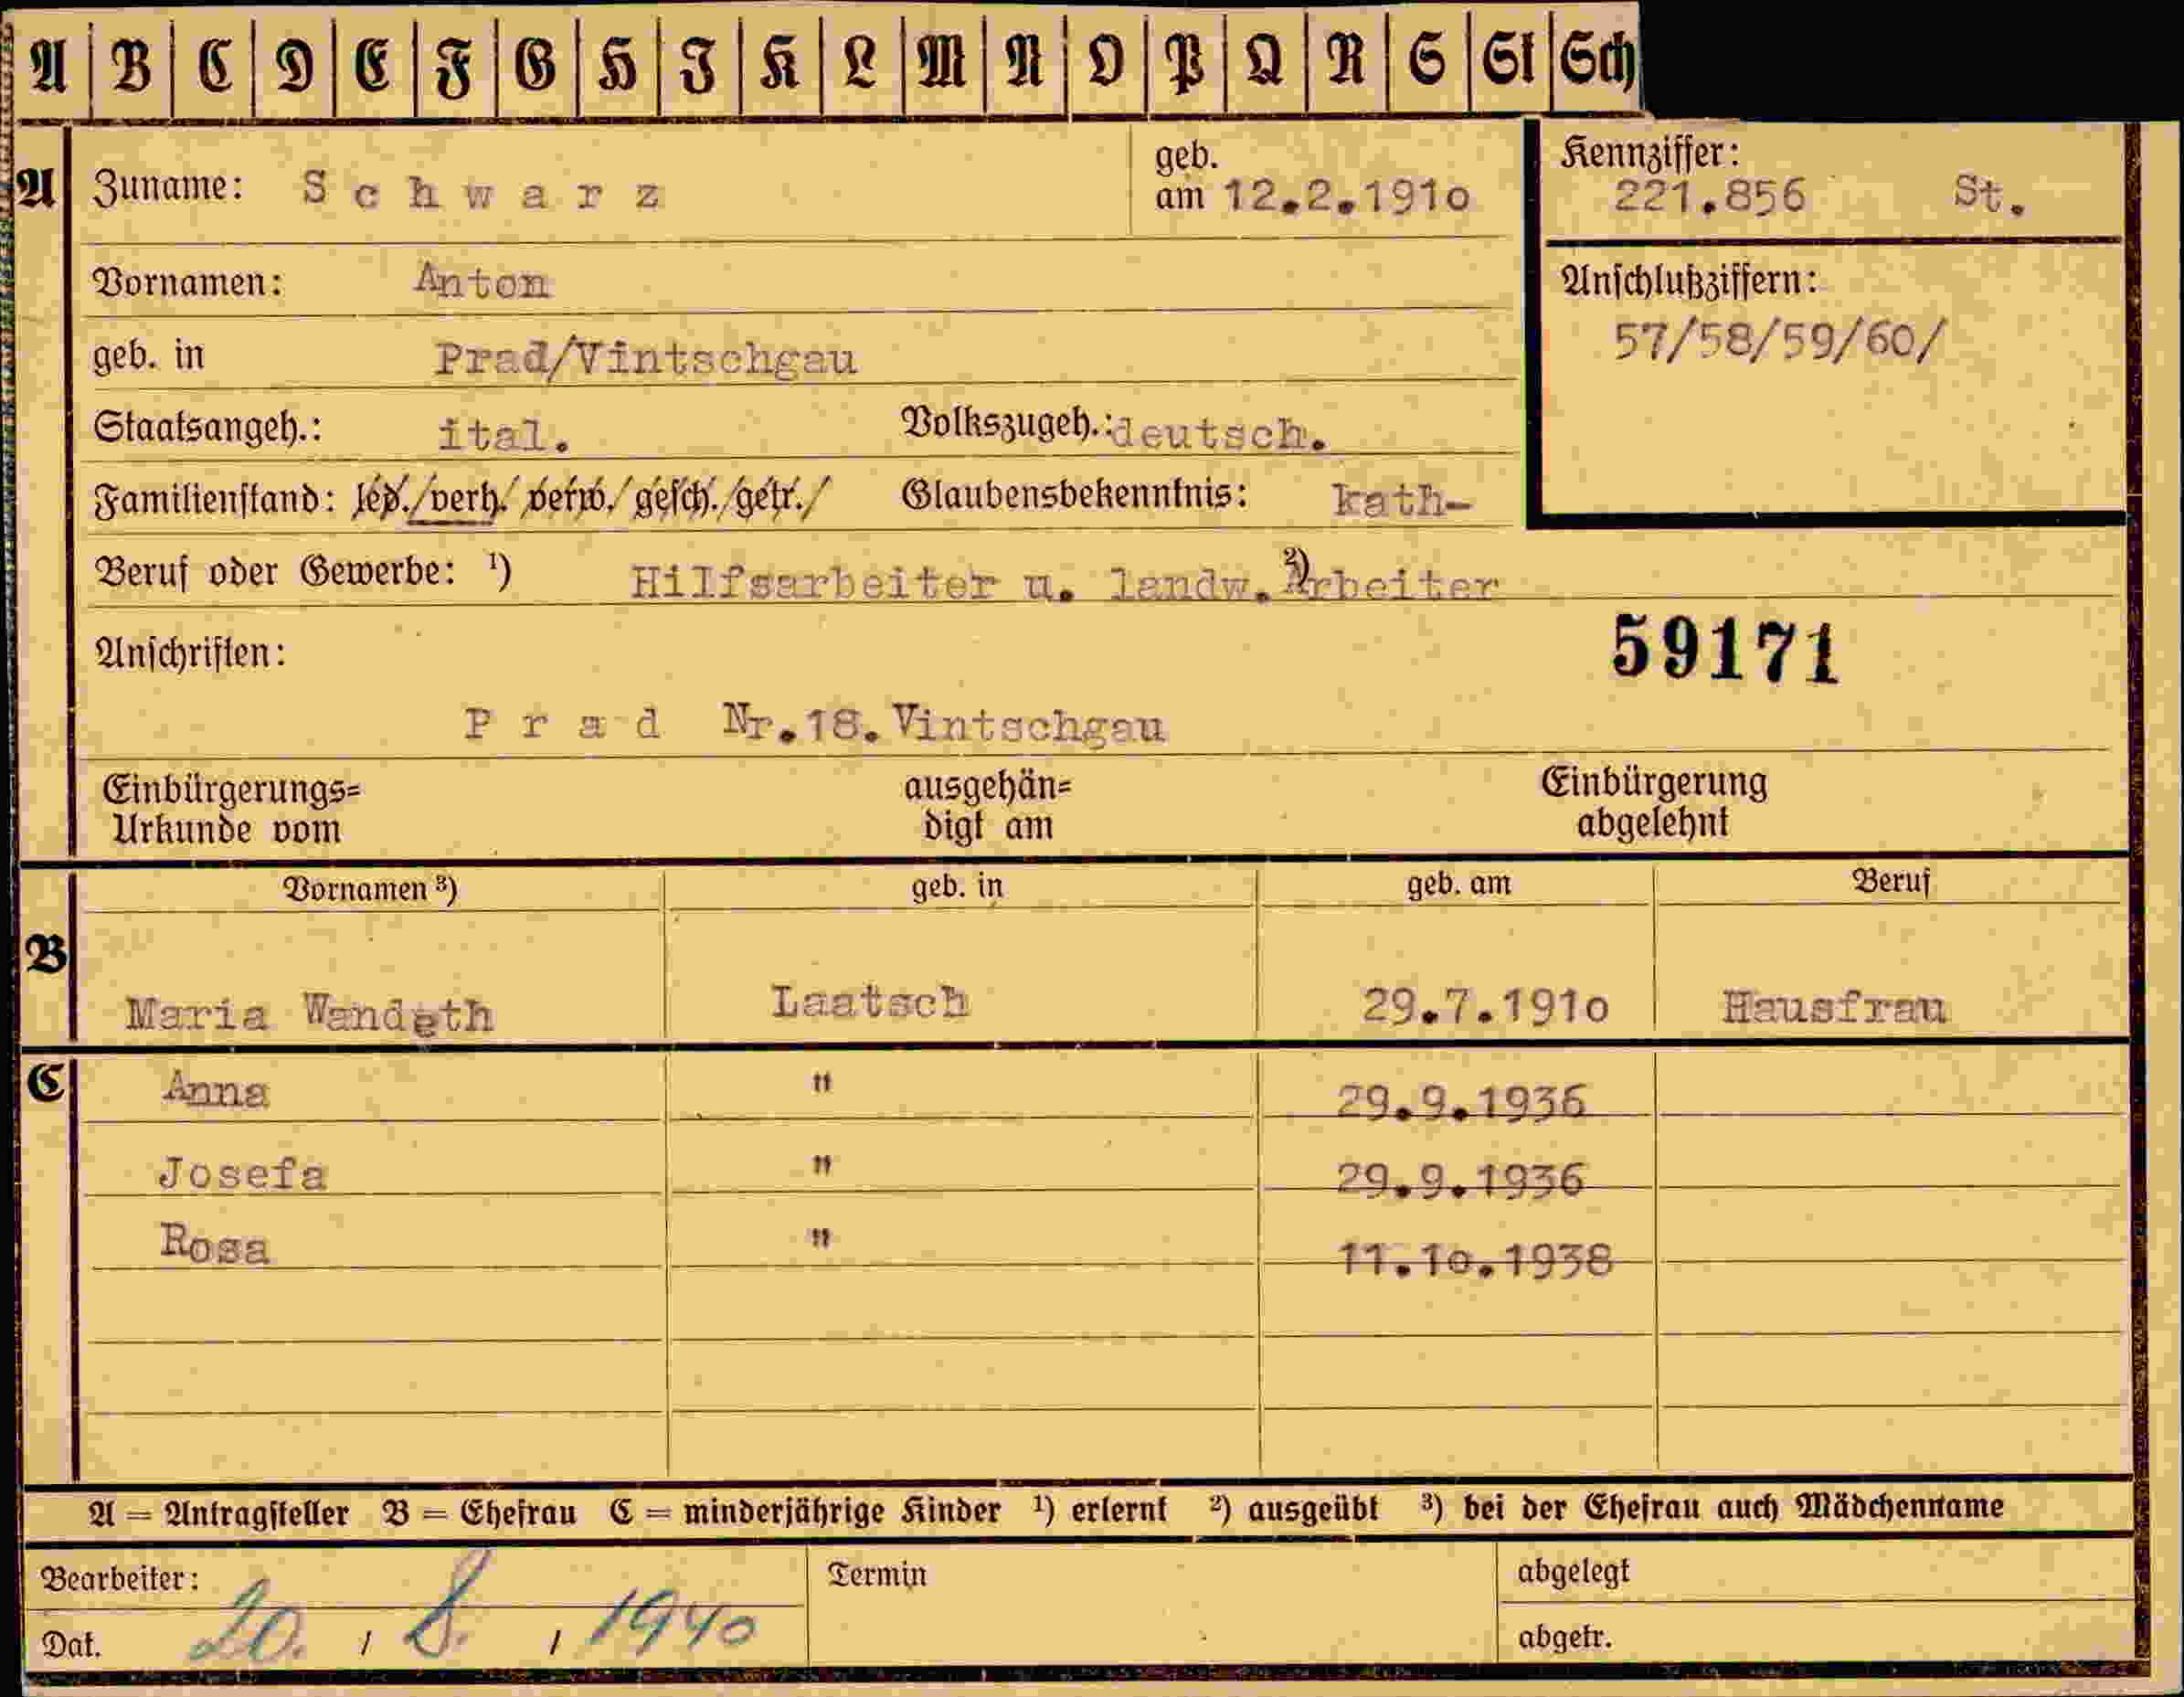 A B C D E F G H I K L M N O P Q R S St Sch
A Zuname: Schwarz geb. am 12.2.1910 Kennziffer: 221.856 St.
Vornamen: Anton Anschlußziffern:
57/58/59/60/
geb. in Prad/Vintschgau
Staatsangeh.: ital. Volkszugeh.: deutsch.
Familienstand: led./verh./verw./gesch./getr./ Glaubensbekenntnis: kath-
Beruf oder Gewerbe: ¹) Hilfsarbeiter u. landw. ²) Arbeiter
Anschriften: 59171
Prad Nr.18. Vintschgau
Einbürgerungs= ausgehän= Einbürgerung
Urkunde vom digt am abgelehnt
Vornamen ³) geb. in geb. am Beruf
B
Maria Wandeth Laatsch 29.7.1910 Hausfrau
C Anna " 29.9.1936
Josefa " 29.9.1936
Rosa " 11.10.1938
A = Antragsteller B = Ehefrau C = minderjährige Kinder ¹) erlernt ²) ausgeübt ³) bei der Ehefrau auch Mädchenname
Bearbeiter: Termin abgelegt
Dat. 20. / 8. / 1940 abgetr.